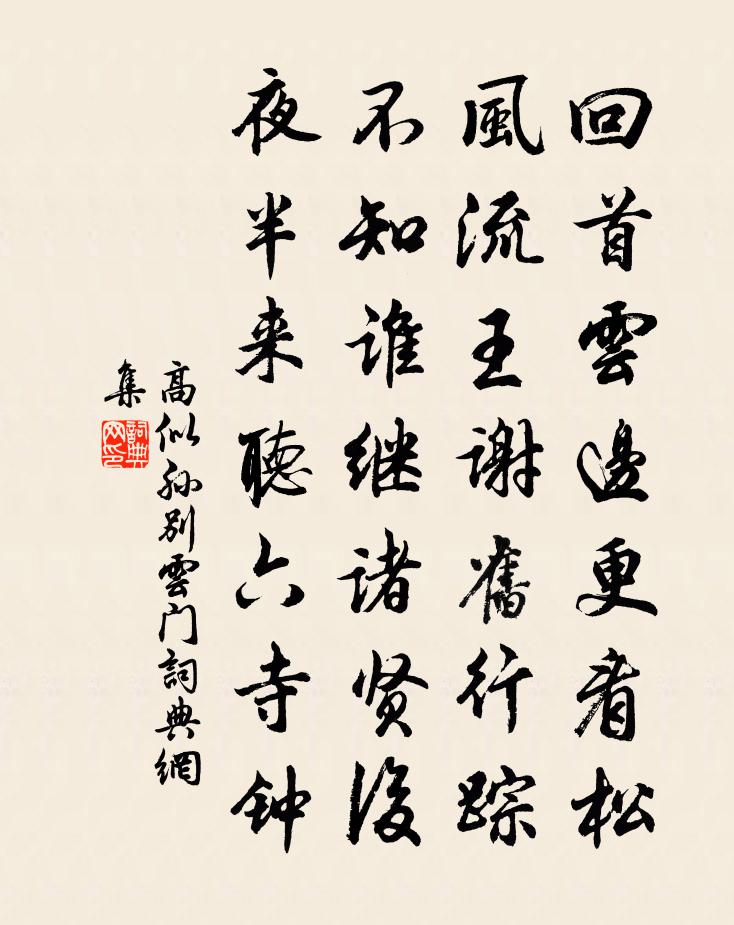 回首雲邊更看松
風流王謝舊行踪
不知谁继诸贤後
夜半来聽六寺钟
高似孙别雲门詞典網
集
詞典
网印